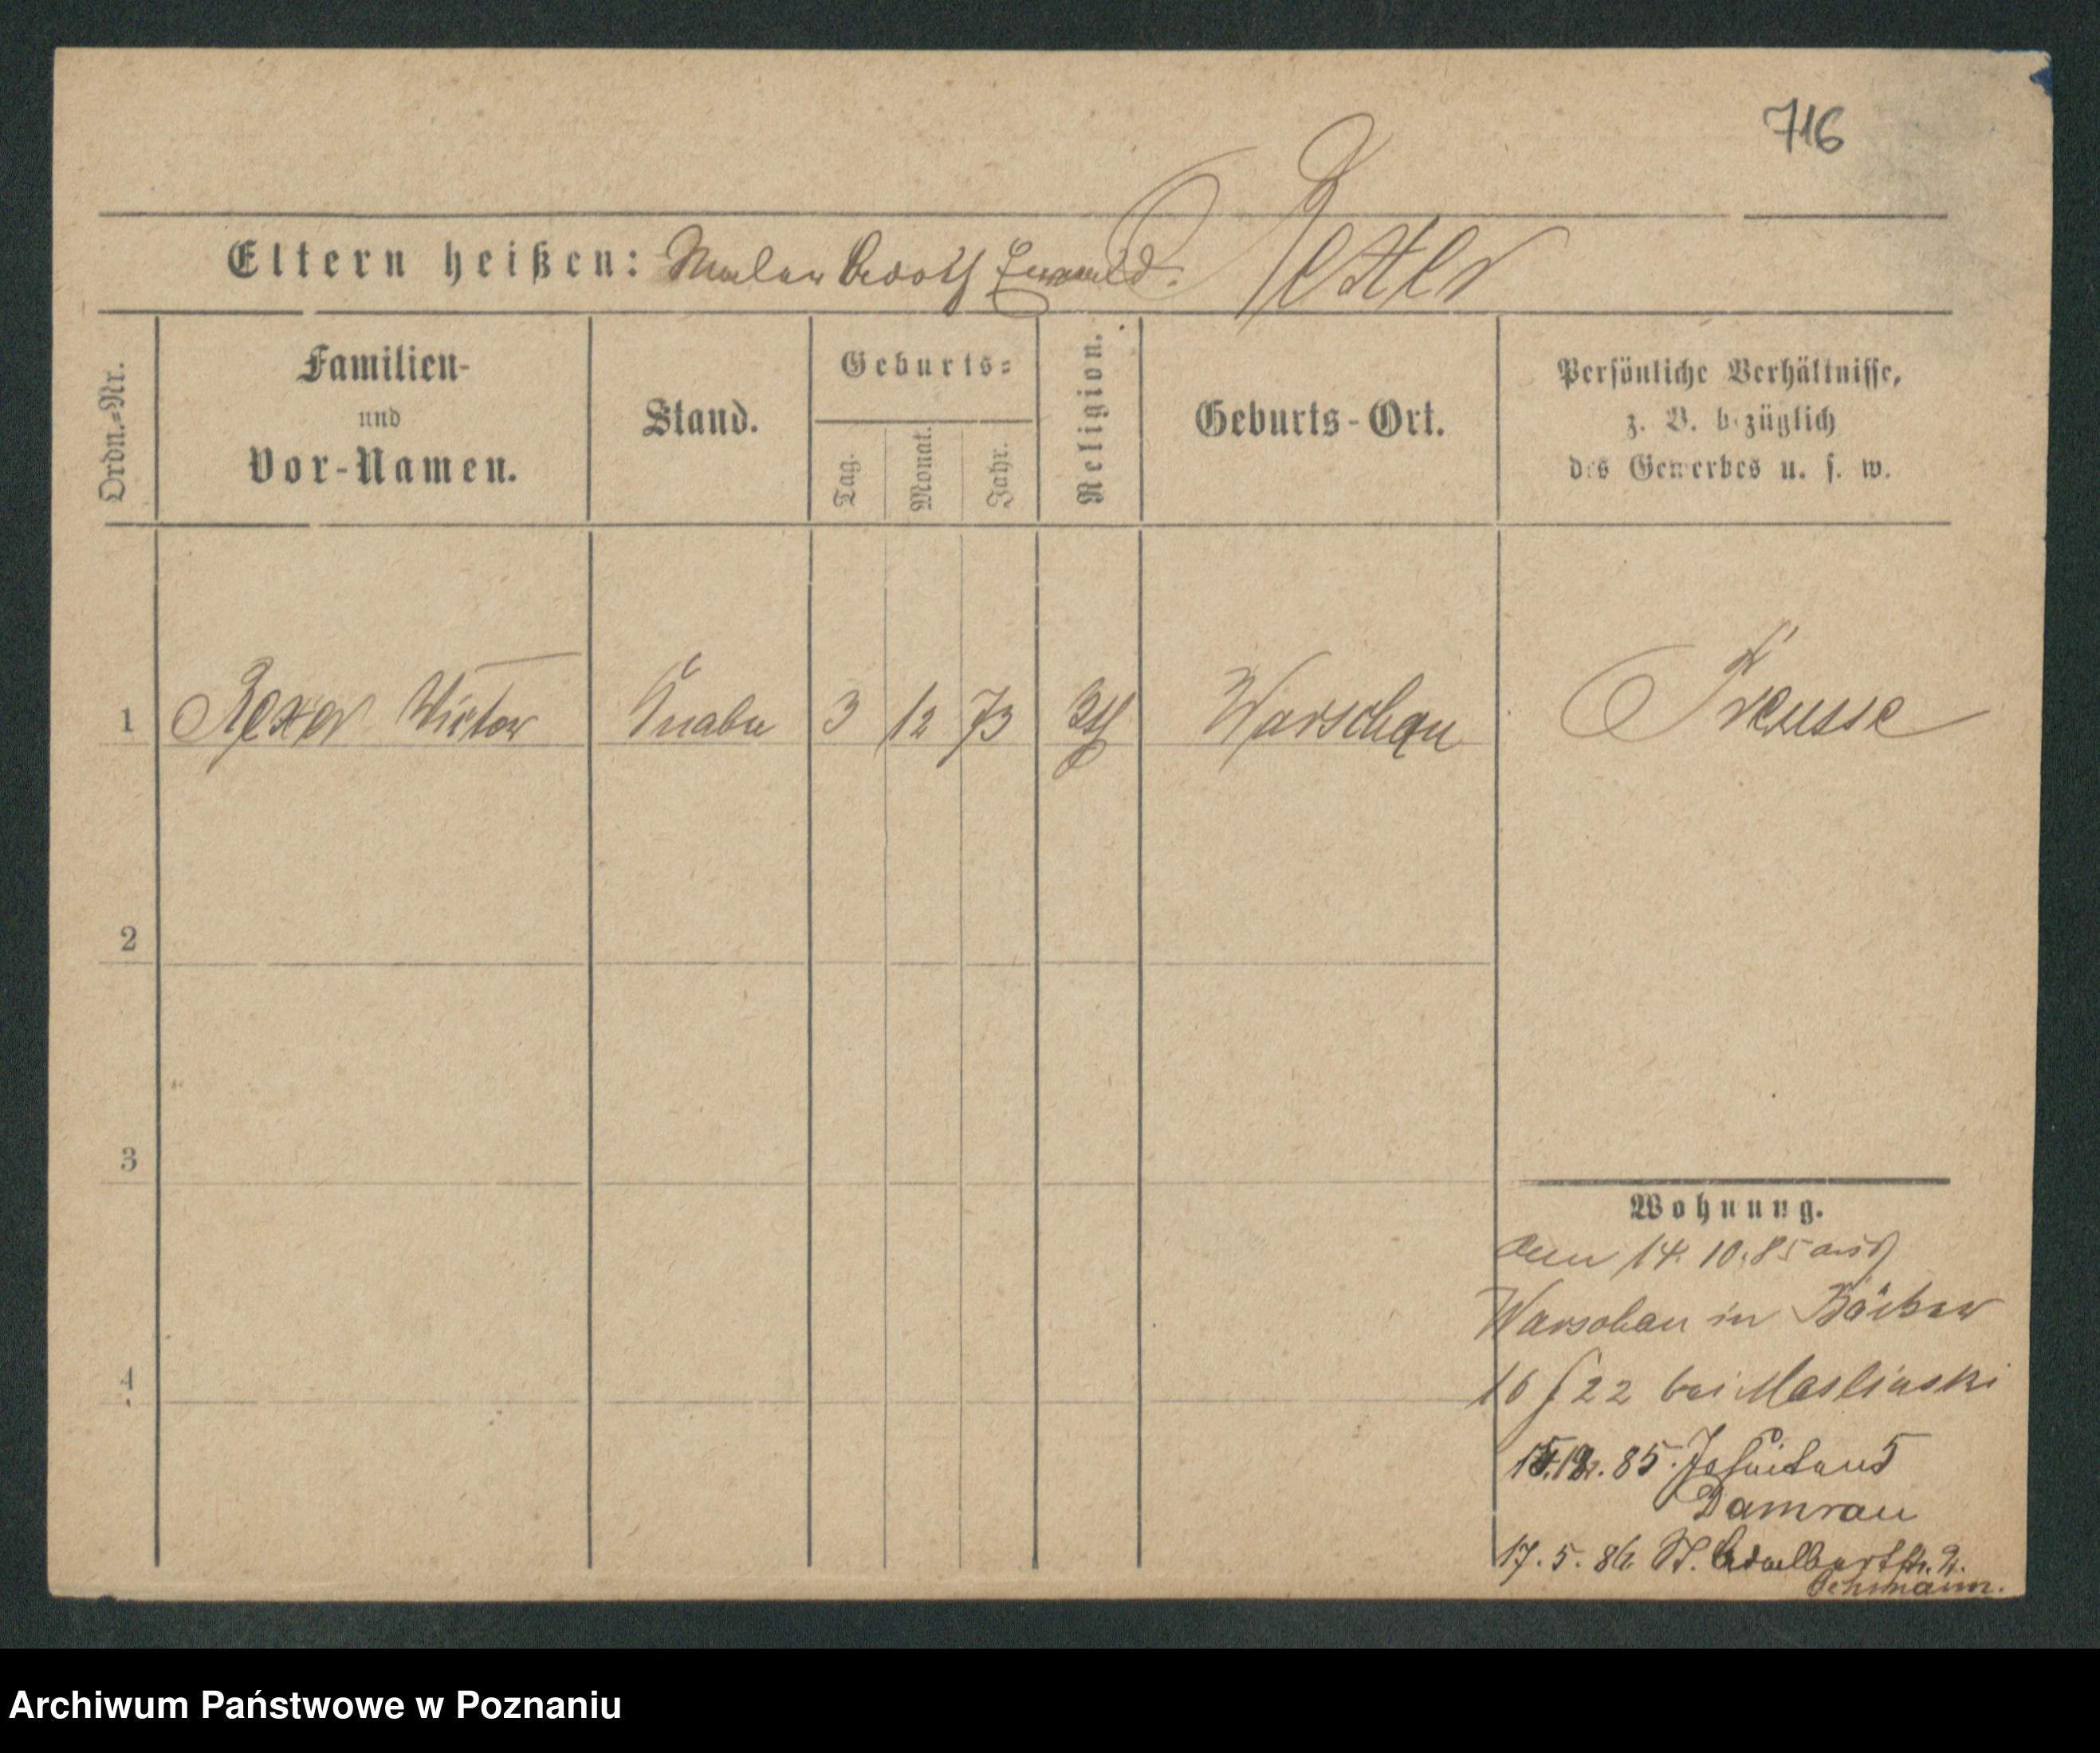 716
Eltern heißen: Maler Adolf Ewald.
Ordn.=Nr.
Familien-
und
Vor-Namen.
Stand.
Geburts=
Tag.
Monat.
Jahr.
Religion.
Geburts-Ort.
Persönliche Verhältnisse,
z. B. bezüglich
des Gewerbes u. s. w.
1 Rexer Victor Knabe 3 12 73 Warschau Preusse
2
3
4
Wohnung.
den 14. 10. 85 aus
Warschau in Bäcker
16 / 22 bei Maslinski
85. Jesuitens 5
Damrau
17. 5. 86. St. Adalbertstr. 2.
Archiwum Państwowe w Poznaniu